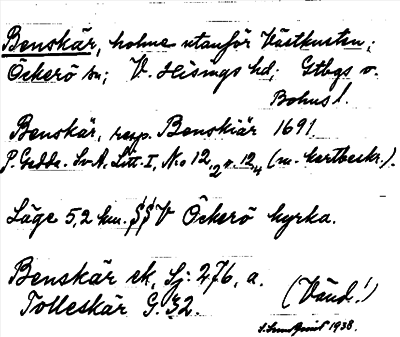 Benskär, holme utanför Västkusten;
Öckerö sn; V. Hisings hd; Gtbgs o.
Bohus l.
Benskär, resp. Benskiär 1691
P. Gedda. Sv. A. Litt. I, No 12,2 o. 12,4 (m. kartbeskr.).
Läge 5,2 km. SSV Öckerö kyrka.
Benskär ek. Sj: 276, a.
Tolleskär G. 32. (Vänd!)
1938.